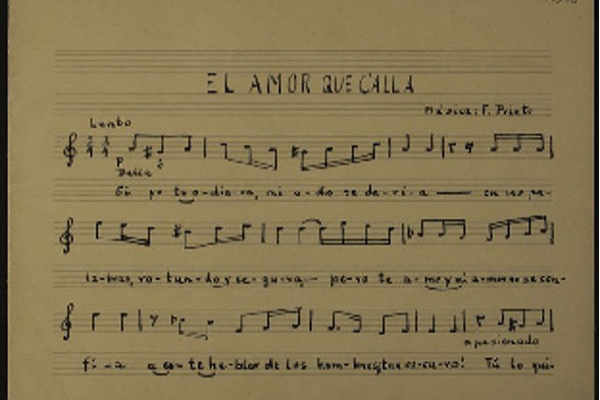 EL AMOR QUE CALLA
Música: F. Prieto
Lento
p
Dolce
Si yo te o-dia-ra, mi o-dio te da-rí-a en las pa-
la-bras, ro-tun-do y se-gu-ro; pe-ro te a-mo y mi a-mor no se con-
apasionado
fí-a a es-te ha-blar de los hom-bres, tan os-cu-ro! Tú lo qui-